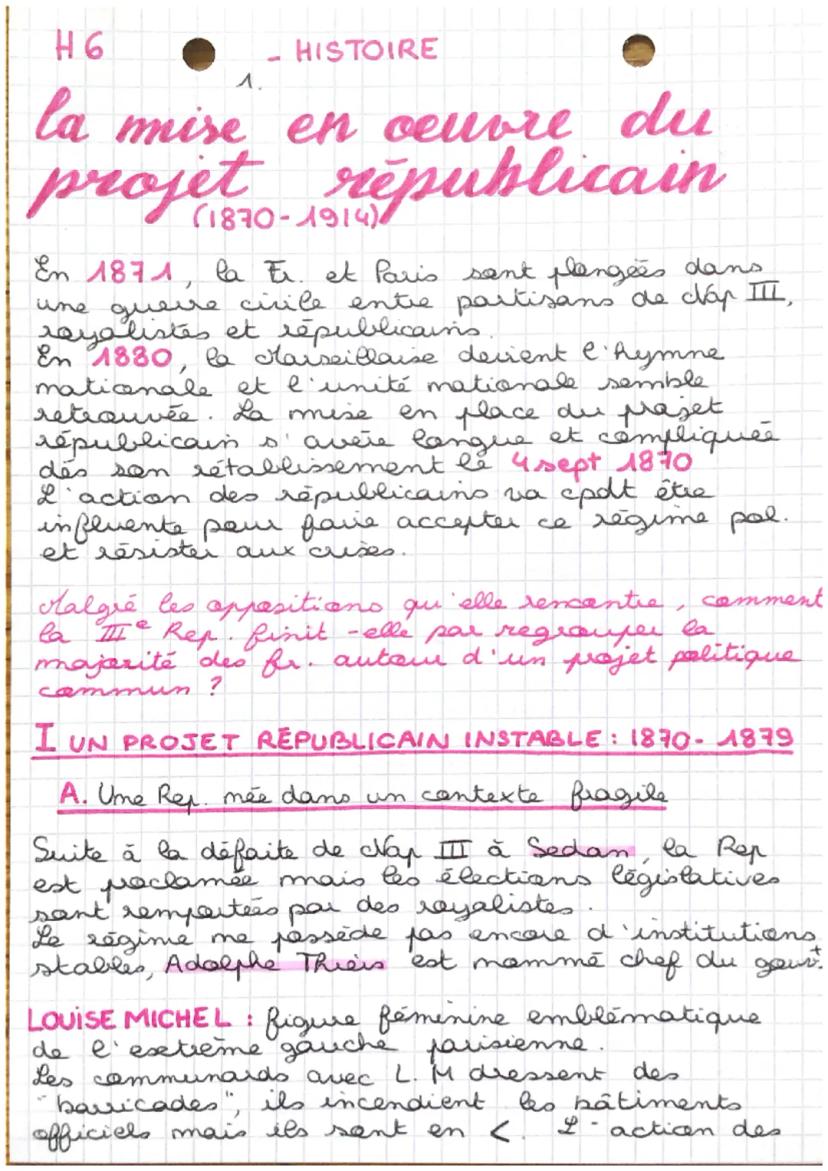 H6 - HISTOIRE
1.
la mise en oeuvre du
projet républicain
(1870-1914)
En 1871, la Fr. et Paris sont plongées dans
une guerre civile entre partisans de Nap III,
royalistes et républicains.
En 1880, la Marseillaise devient l'hymne
nationale et l'unité nationale semble
retrouvée. La mise en place du projet
républicain s'avère longue et compliquée
dès son rétablissement le 4 sept 1870
L'action des républicains va cpdt être
influente pour faire accepter ce régime pol.
et résister aux crises.
Malgré les oppositions qu'elle rencontre, comment
la IIIe Rep. finit-elle par regrouper la
majorité des fr. autour d'un projet politique
commun ?
I UN PROJET RÉPUBLICAIN INSTABLE : 1870-1879
A. Une Rep. née dans un contexte fragile
Suite à la défaite de Nap III à Sedan, la Rep
est proclamée mais les élections législatives
sont remportées par des royalistes.
Le régime ne possède pas encore d'institutions
stables, Adolphe Thiers est nommé chef du gouv+.
LOUISE MICHEL : figure féminine emblématique
de l'extrême gauche parisienne.
Les communards avec L. M dressent des
"barricades", ils incendient les bâtiments
officiels mais ils sont en <. L'action des